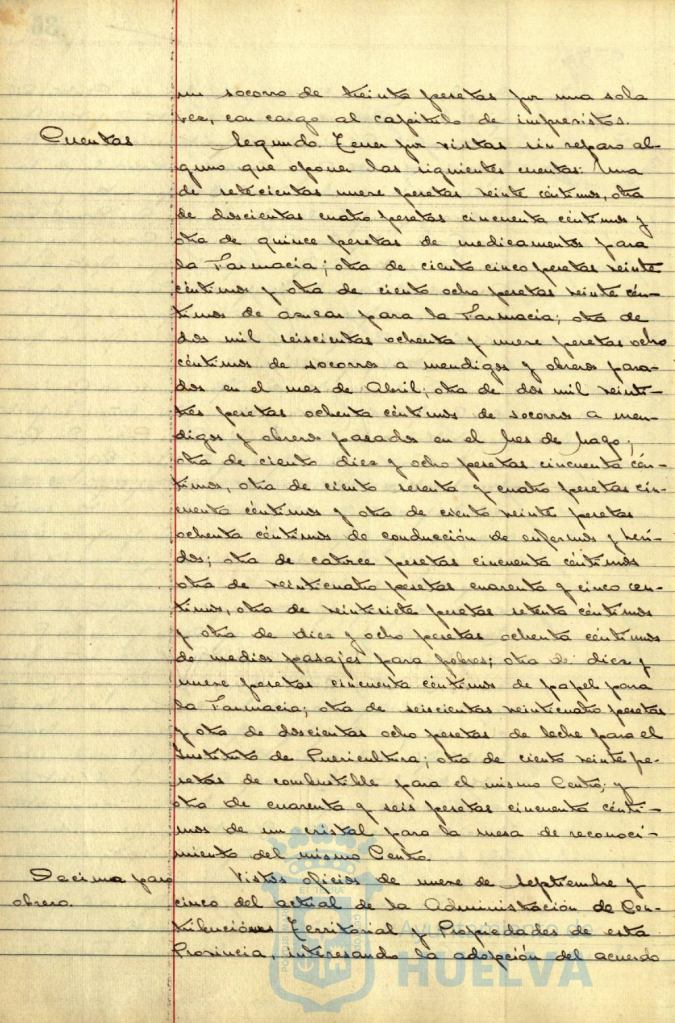 un socorro de treinta pesetas por una sola
vez, con cargo al capítulo de imprevistos.
Cuentas
Segundo. Tener por vistas sin reparo al-
guno que oponer las siguientes cuentas: Una
de setecientas nueve pesetas veinte céntimos, otra
de doscientas cuatro pesetas cincuenta céntimos y
otra de quince pesetas de medicamentos para
la Farmacia; otra de ciento cinco pesetas veinte
céntimos y otra de ciento ocho pesetas veinte cén-
timos de azucar para la Farmacia; otra de
dos mil seiscientas ochenta y nueve pesetas ocho
céntimos de socorros a mendigos y obreros para-
dos en el mes de Abril; otra de dos mil veinti-
trés pesetas ochenta céntimos de socorros a men-
digos y obreros parados en el Mes de Mayo;
otra de ciento diez y ocho pesetas cincuenta cén-
timos, otra de ciento sesenta y cuatro pesetas cin-
cuenta céntimos y otra de ciento veinte pesetas
ochenta céntimos de conducción de enfermos y heri-
dos; otra de catorce pesetas cincuenta céntimos
otra de veinticuatro pesetas cuarenta y cinco cén-
timos, otra de veintisiete pesetas setenta céntimos
y otra de diez y ocho pesetas ochenta céntimos
de medios pasajes para pobres; otra de diez y
nueve pesetas cincuenta céntimos de papel para
la Farmacia; otra de seiscientas veinticuatro pesetas
y otra de doscientas ocho pesetas de leche para el
Instituto de Puericultura; otra de ciento veinte pe-
setas de combustible para el mismo Centro; y
otra de cuarenta y seis pesetas cincuenta cénti-
mos de un cristal para la mesa de reconoci-
miento del mismo Centro.
Decima paro
obrero.
Vistos oficios de nueve de Septiembre y
cinco del actual de la Administración de Con-
tribuciones Territorial y Propiedades de esta
Provincia, interesando la adopción del acuerdo
HUELVA